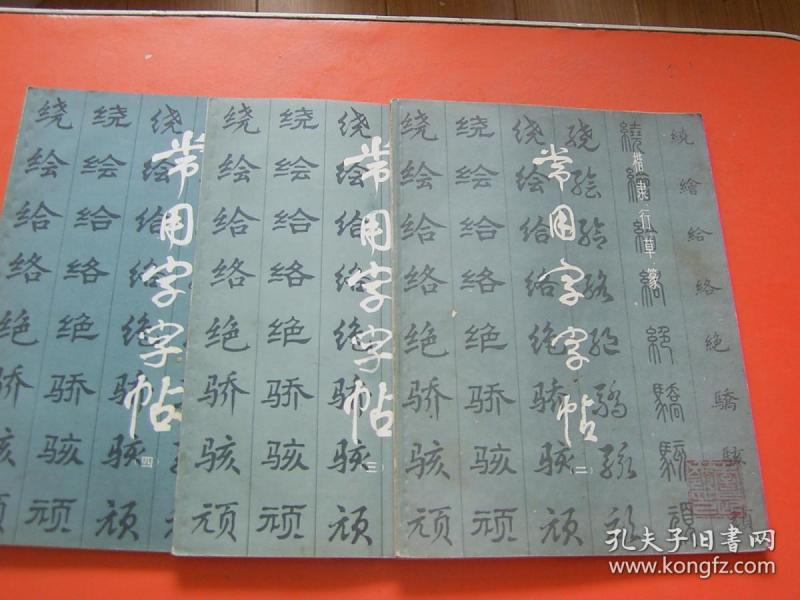 绕 绕 绕
绘 绘 绘
给 给 给
络 络 络
绝 绝 绝
骄 骄 骄
骇 骇 骇
顽 顽 顽
常用字字帖
(四)
绕 绕 绕
绘 绘 绘
给 给 给
络 络 络
绝 绝 绝
骄 骄 骄
骇 骇 骇
顽 顽 顽
常用字字帖
(三)
绕 绕 绕 绕 繞 繞
绘 绘 绘 绘 繪
给 给 给 给 給
络 络 络 络 絡 絡
绝 绝 绝 绝 絕 絕
骄 骄 骄 骄 驕 驕
骇 骇 骇 骇 駭 駭
顽 顽 顽 顽 頑
常用字字帖
(二)
楷隶行草篆
孔夫子旧书网
www.kongfz.com